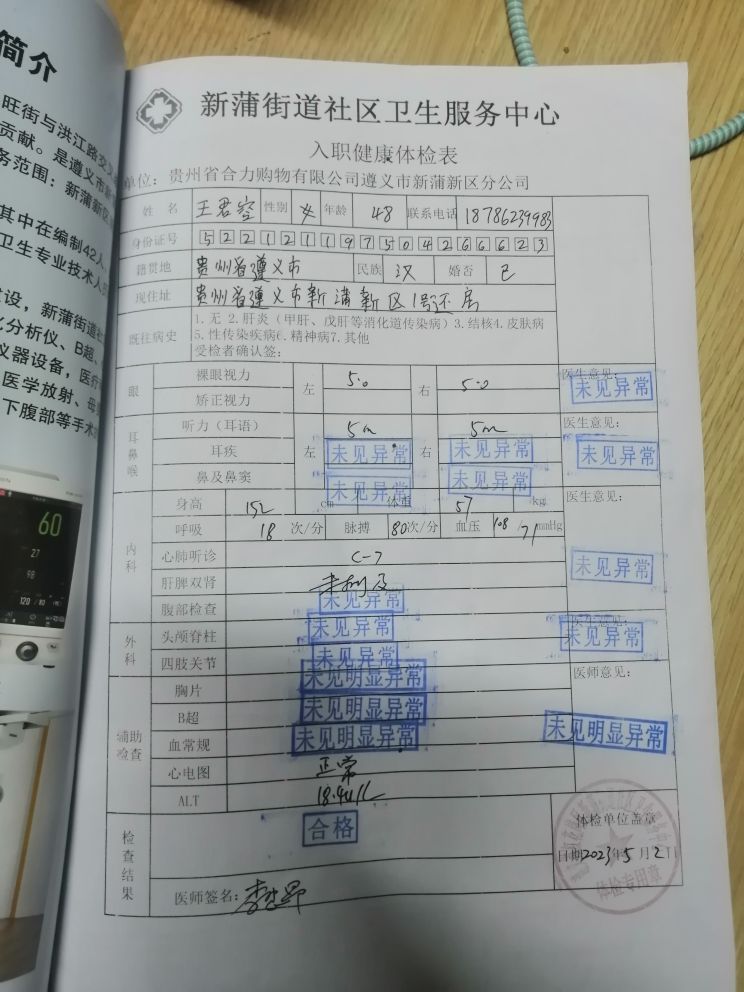 简介
旺街与洪江路交叉
贡献。是遵义市新
务范围：新蒲新区
其中在编制42人，
卫生专业技术人员
设，新蒲街道社
化分析仪、B超、
仪器设备，医疗
医学放射、母婴
下腹部等手术
60
27
98
120 / 80
新蒲街道社区卫生服务中心
入职健康体检表
单位：贵州省合力购物有限公司遵义市新蒲新区分公司
姓 名 王君空 性别 女 年龄 48 联系电话 18786239983
身份证号 522121197504266623
籍贯地 贵州省遵义市 民族 汉 婚否 已
现住址 贵州省遵义市新蒲新区1号还房
既往病史 1.无 2.肝炎（甲肝、戊肝等消化道传染病）3.结核4.皮肤病
5.性传染疾病6.精神病7.其他
受检者确认签：
眼 裸眼视力 左 5.0 右 5.0 医生意见：
矫正视力 未见异常
耳鼻喉 听力（耳语） 左 5m 右 5m 医生意见：
耳疾 未见异常 未见异常 未见异常
鼻及鼻窦 未见异常 未见异常
内科 身高 152 cm 体重 57 kg 医生意见：
呼吸 18 次/分 脉搏 80次/分 血压 108/71mmHg
心肺听诊 (-) 未见异常
肝脾双肾 未触及
腹部检查 未见异常
外科 头颅脊柱 未见异常 医生意见：
四肢关节 未见异常 未见异常
辅助检查 胸片 未见明显异常 医师意见：
B超 未见明显异常
血常规 未见明显异常 未见明显异常
心电图 正常
ALT 18.4u/L
检查结果 合格 体检单位盖章
日期2023年5月2日
体检专用章
医师签名：